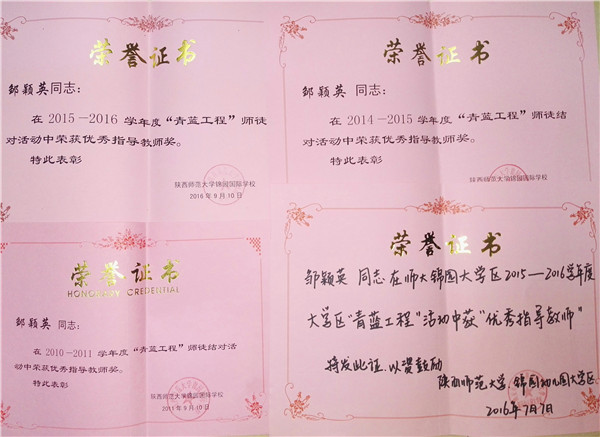 荣誉证书
邹颖英同志：
在 2015－2016 学年度“青蓝工程”师徒结
对活动中荣获优秀指导教师奖。
特此表彰
陕西师范大学锦园国际学校
2016 年 9 月 10 日
荣誉证书
邹颖英 同志：
在 2014－2015 学年度“青蓝工程”师徒结
对活动中荣获优秀指导教师奖。
特此表彰
陕西师范大学锦园国际学校
荣誉证书
HONORARY CREDENTIAL
邹颖英 同志：
在 2010－2011 学年度“青蓝工程”师徒结对活
动中荣获优秀指导教师奖。
特此表彰
陕西师范大学锦园国际学校
2011 年 9 月 10 日
荣誉证书
邹颖英 同志在师大锦园大学区2015—2016学年度
大学区“青蓝工程”活动中获“优秀指导教师”
特发此证，以资鼓励
陕西师范大学锦园幼儿园大学区
2016年7月7日